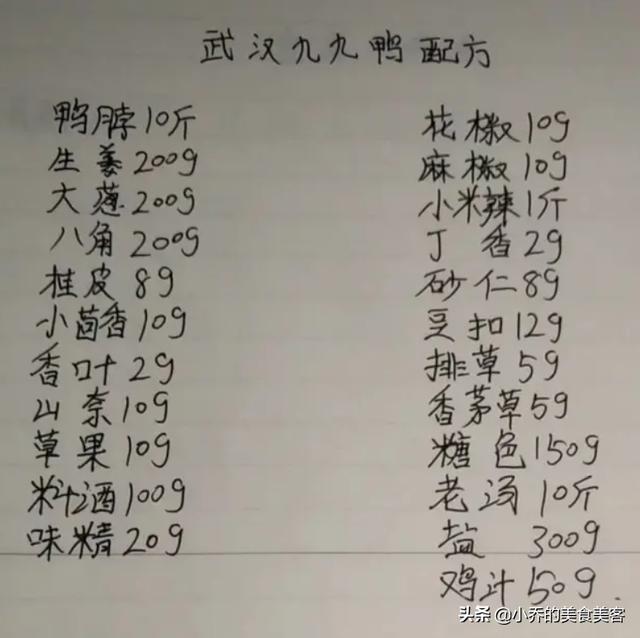 武汉九九鸭配方
鸭脖10斤
生姜200g
大葱200g
八角200g
桂皮8g
小茴香10g
香叶2g
山奈10g
草果10g
料酒100g
味精20g
花椒10g
麻椒10g
小米辣1斤
丁香2g
砂仁8g
豆扣12g
排草5g
香茅草5g
糖色150g
老汤10斤
盐300g
鸡汁50g.
头条@小乔的美食美客